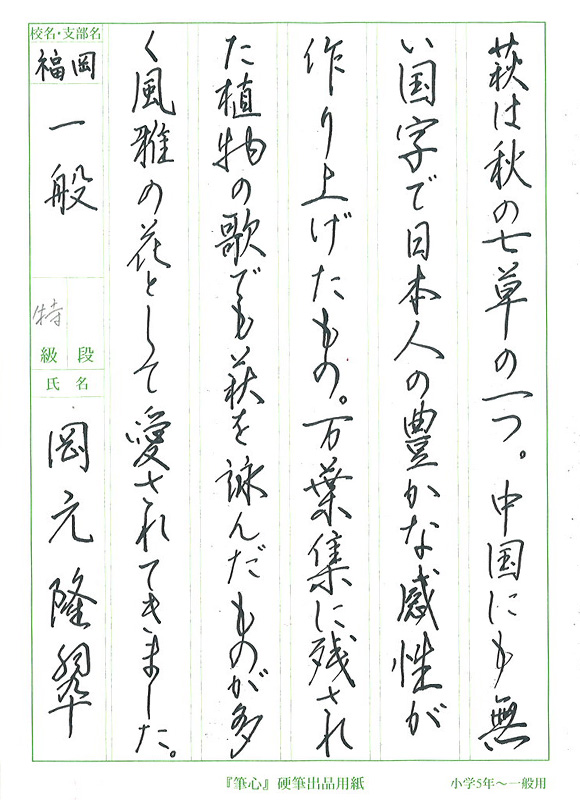 萩は秋の七草の一つ。中国にも無
い国字で日本人の豊かな感性が
作り上げたもの。万葉集に残され
た植物の歌でも萩を詠んだものが多
く風雅の花として愛されてきました。
校名・支部名
福岡
一般
特
級 段
氏 名
岡元隆翠
『筆心』硬筆出品用紙
小学5年〜一般用